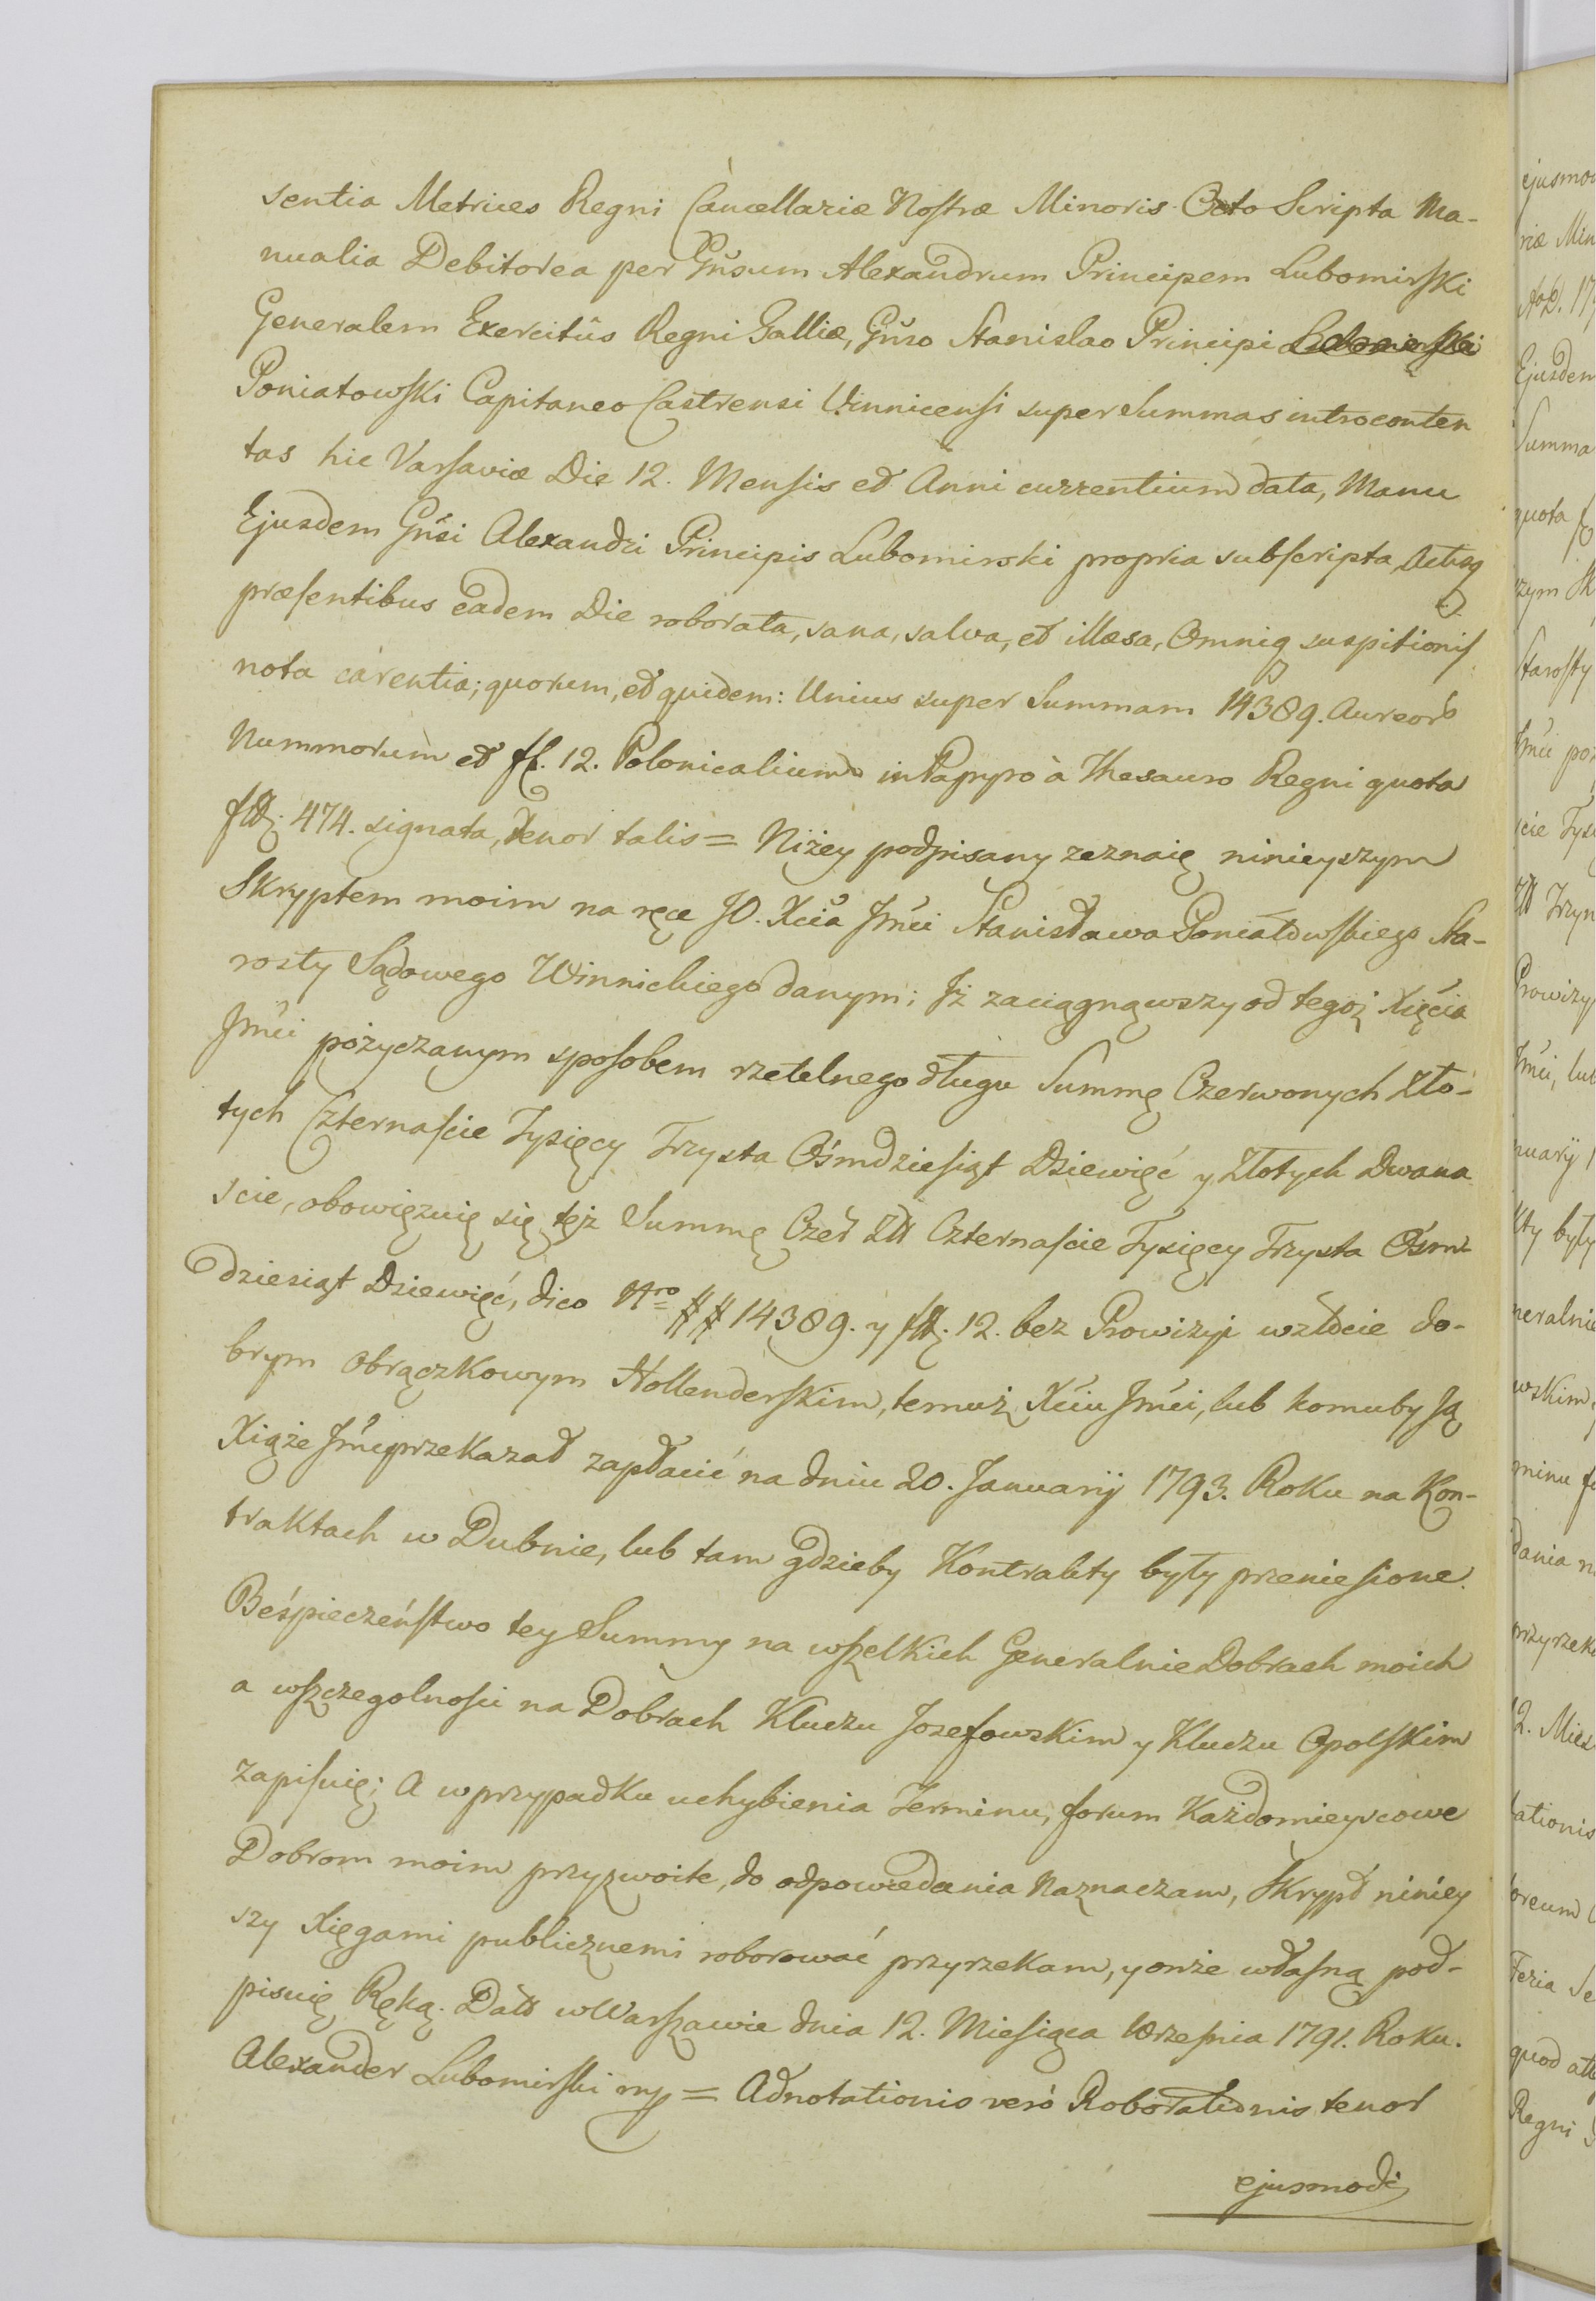 sentia Metrices Regni Cancellariæ Nostræ Minoris Octo Scripta Ma-
nualia Debitorea per Gnsum Alexandrum Principem Lubomirski
Generalem Exercitûs Regni Galliæ, Gnso Stanislao Principi Lubomirski
Poniatowski Capitaneo Castrensi Vinnicensi super Summas introconten
tas hic Varsaviæ Die 12. Mensis et Anni currentium data, Manu
Ejusdem Gnsi Alexandri Principis Lubomirski propria subscripta, Actisq
præsentibus eadem Die roborata, sana, salva, et illæsa, Omniq suspitionis
nota carentia; quorum, et quidem: Unius super Summam 14389. Aureorum
Nummorum et fl. 12. Polonicalium in Papyro à Thesauro Regni quota
fłł. 474. signata, tenor talis = Niżey podpisany zeznaię ninieyszym
Skryptem moim na ręce JO. Xcia Jmci Stanisława Poniatowskiego Sta-
rosty Sądowego Winnickiego danym; Iż zaciągnąwszy od tegoż Xięcia
Jmci pożyczanym sposobem rzetelnego długu Summę Czerwonych Zło-
tych Czternaście Tysięcy Trzysta Ośmdziesiąt Dziewięć y Złotych Dwana
ście, obowięzuię się tęż Summę Czer Złł Czternaście Tysięcy Trzysta Ośm-
dziesiąt Dziewięć, dico Nro ## 14389. y fłł. 12. bez Prowizyi w złocie do-
brym obrączkowym Hollenderskim, temuż Xciu Jmci, lub komuby Ją
Xiąże Jmć przekazał zapłacić na dniu 20. Januarij 1793. Roku na Kon-
traktach w Dubnie, lub tam gdzieby Kontrakty były przeniesione.
Beśpieczeństwo tey Summy na wszelkich Generalnie Dobrach moich
a wszczegolności na Dobrach Kluczu Josefowskim y Kluczu Opolskim
zapisuię; A w przypadku uchybienia Terminu, forum Każdomieyscowe
Dobrom moim przyzwoite, do odpowiedania naznaczam, Skrypt niniey
szy Xięgami publicznemi roborować przyrzekam, y onże własną pod-
pisuię Ręką. Datt w Warszawie dnia 12. Miesiąca Września 1791. Roku.
Alexander Lubomirski mp = Adnotationis verò Roborationis tenor
ejusmodi